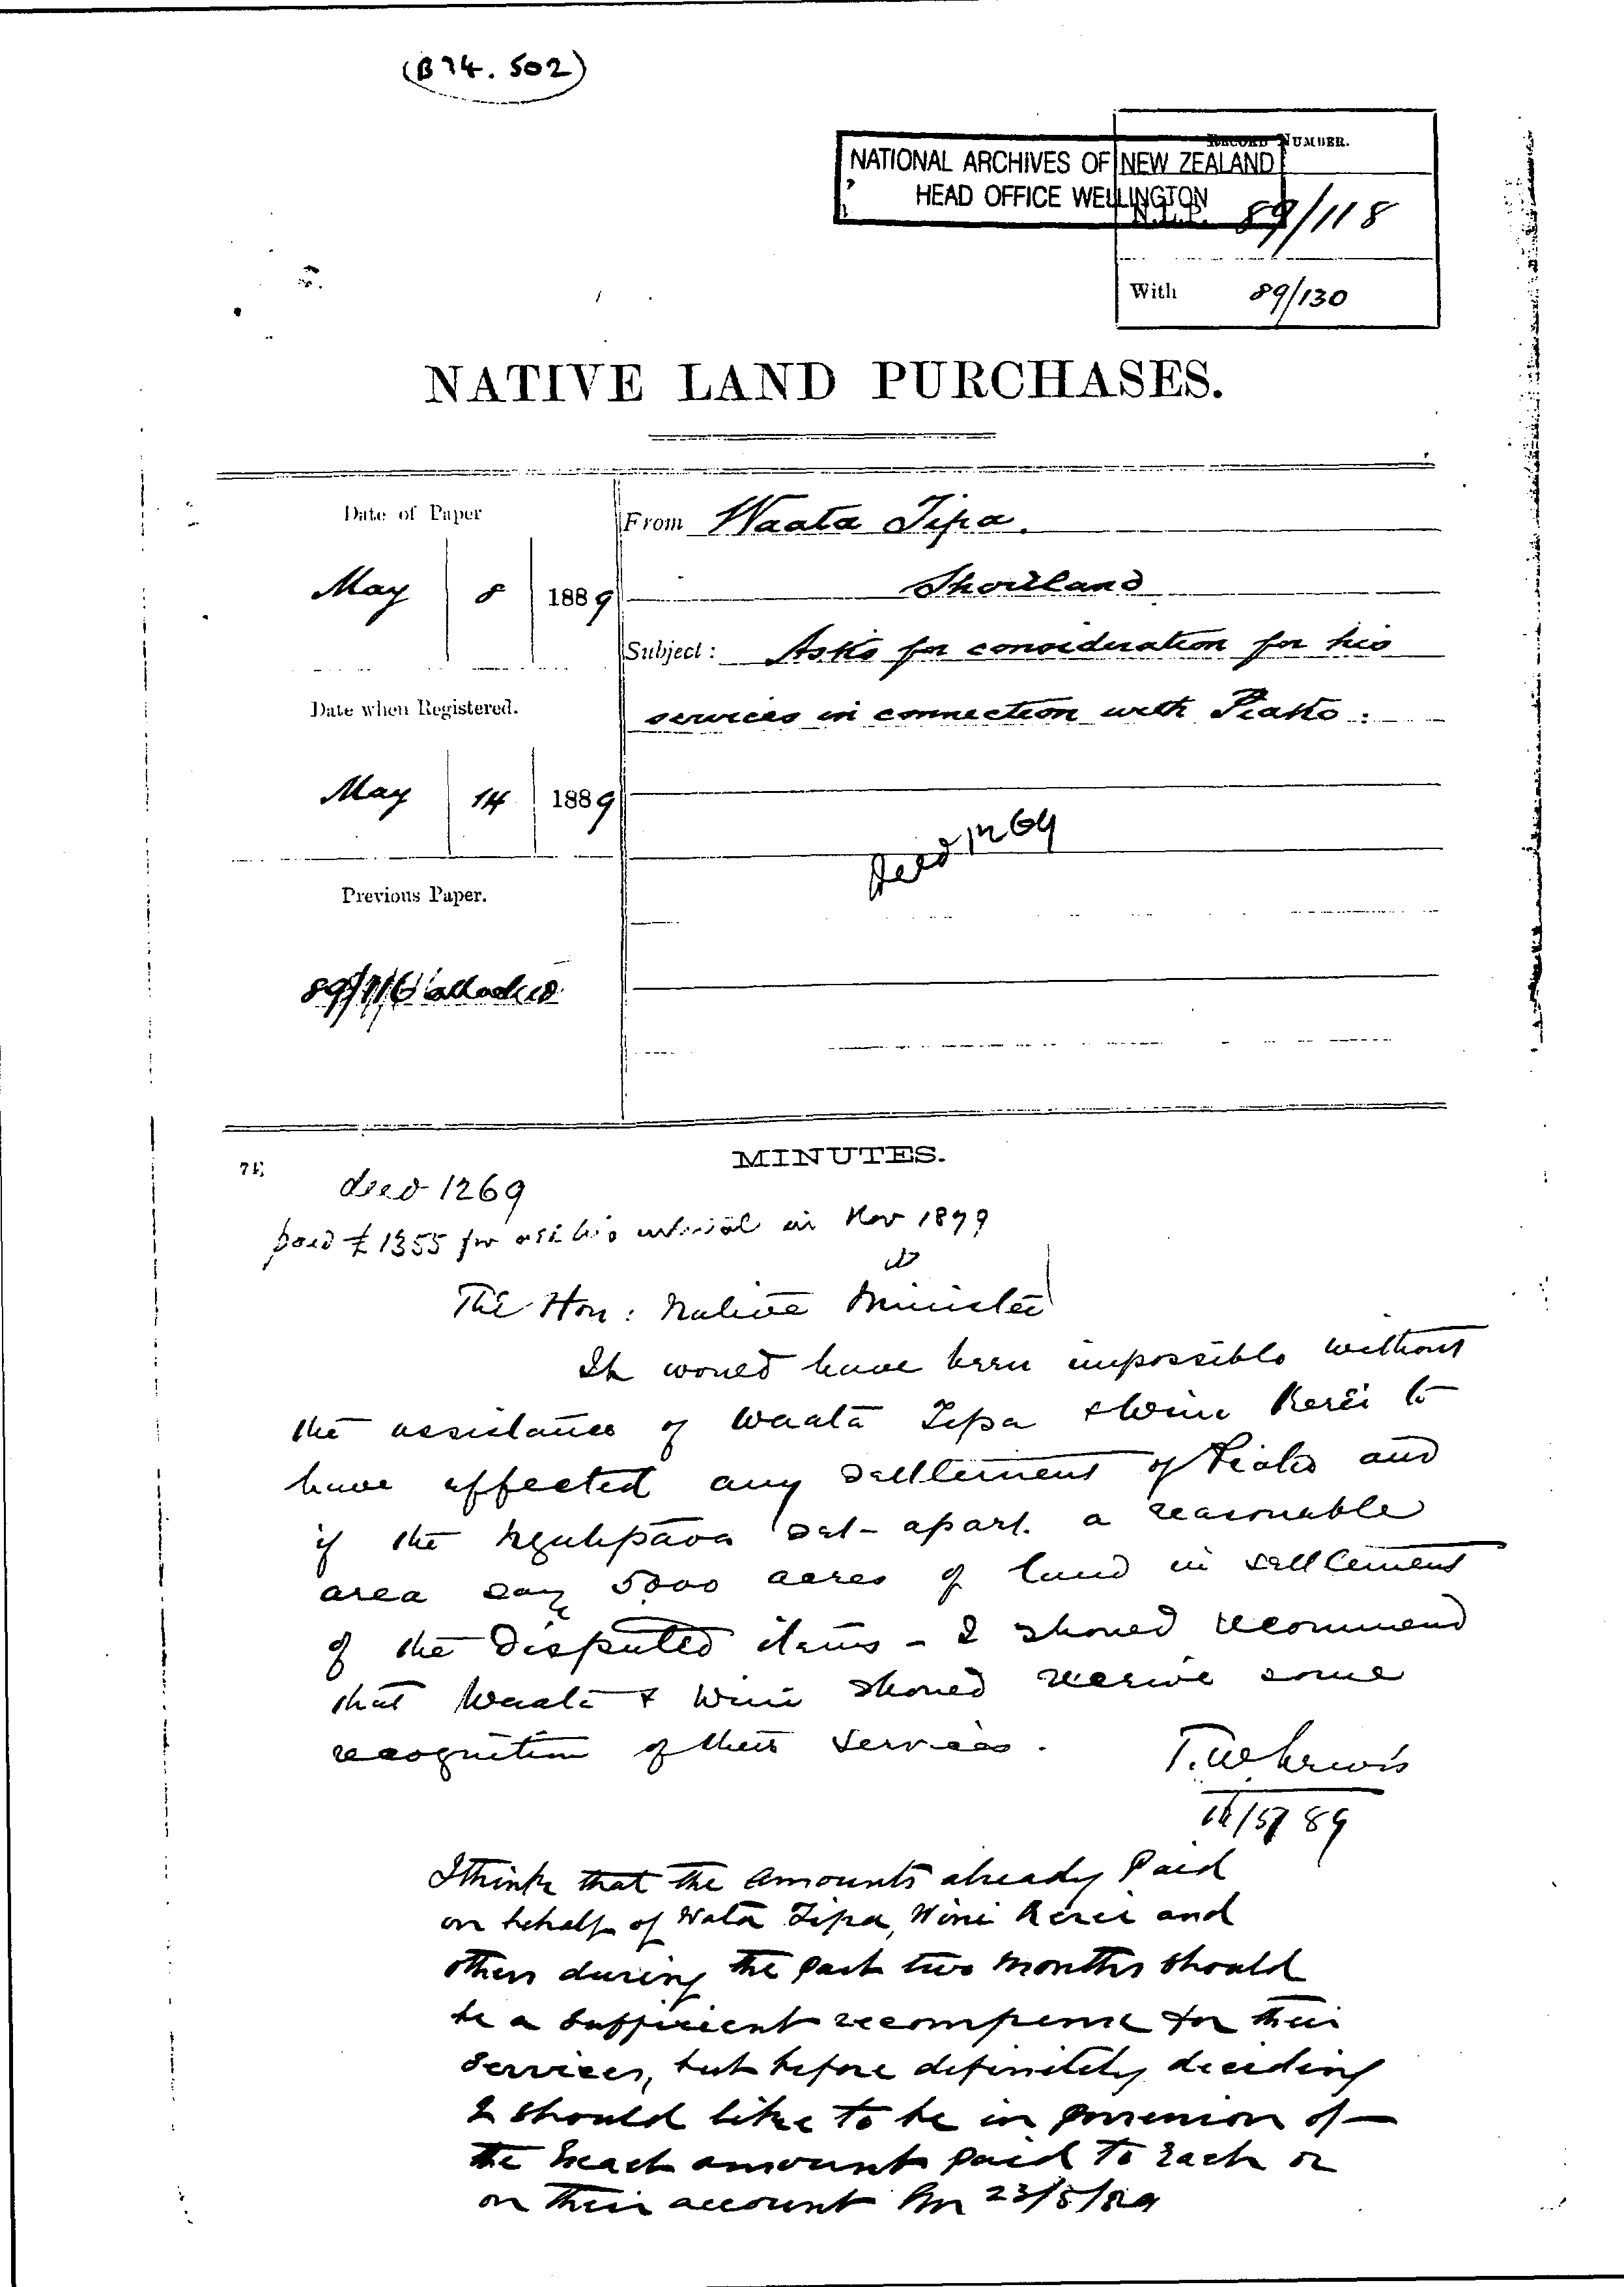 (B74. 502)
RECORD NUMBER.
NATIONAL ARCHIVES OF NEW ZEALAND
HEAD OFFICE WELLINGTON
N.L.P. 89/118
With 89/130
NATIVE LAND PURCHASES.
Date of Paper
From Waata Tipa.
Shortland
May 8 1889
Subject: Asks for consideration for his
services in connection with Piako.
Date when Registered.
May 14 1889
Deed 1269
Previous Paper.
89/116 attached
MINUTES.
deed 1269
paid £1355 for all his interest in Nov 1879
The Hon: Native Minister
It would have been impossible without
the assistance of Waata Tipa & Wini Kerei to
have effected any settlement of Piako and
if the Ngatipaoa set-apart a reasonable
area say 5000 acres of land in settlement
of the disputed items - I should recommend
that Waata & Wini should receive some
recognition of their services.
T.W. Lewis
14/5/89
I think that the amounts already Paid
on behalf of Wata Tipa, Wini Kerei and
others during the past two months should
be a sufficient recompense for their
services, but before definitely deciding
I should like to be in possession of
the Exact amount paid to Each or
on their account 23/5/89